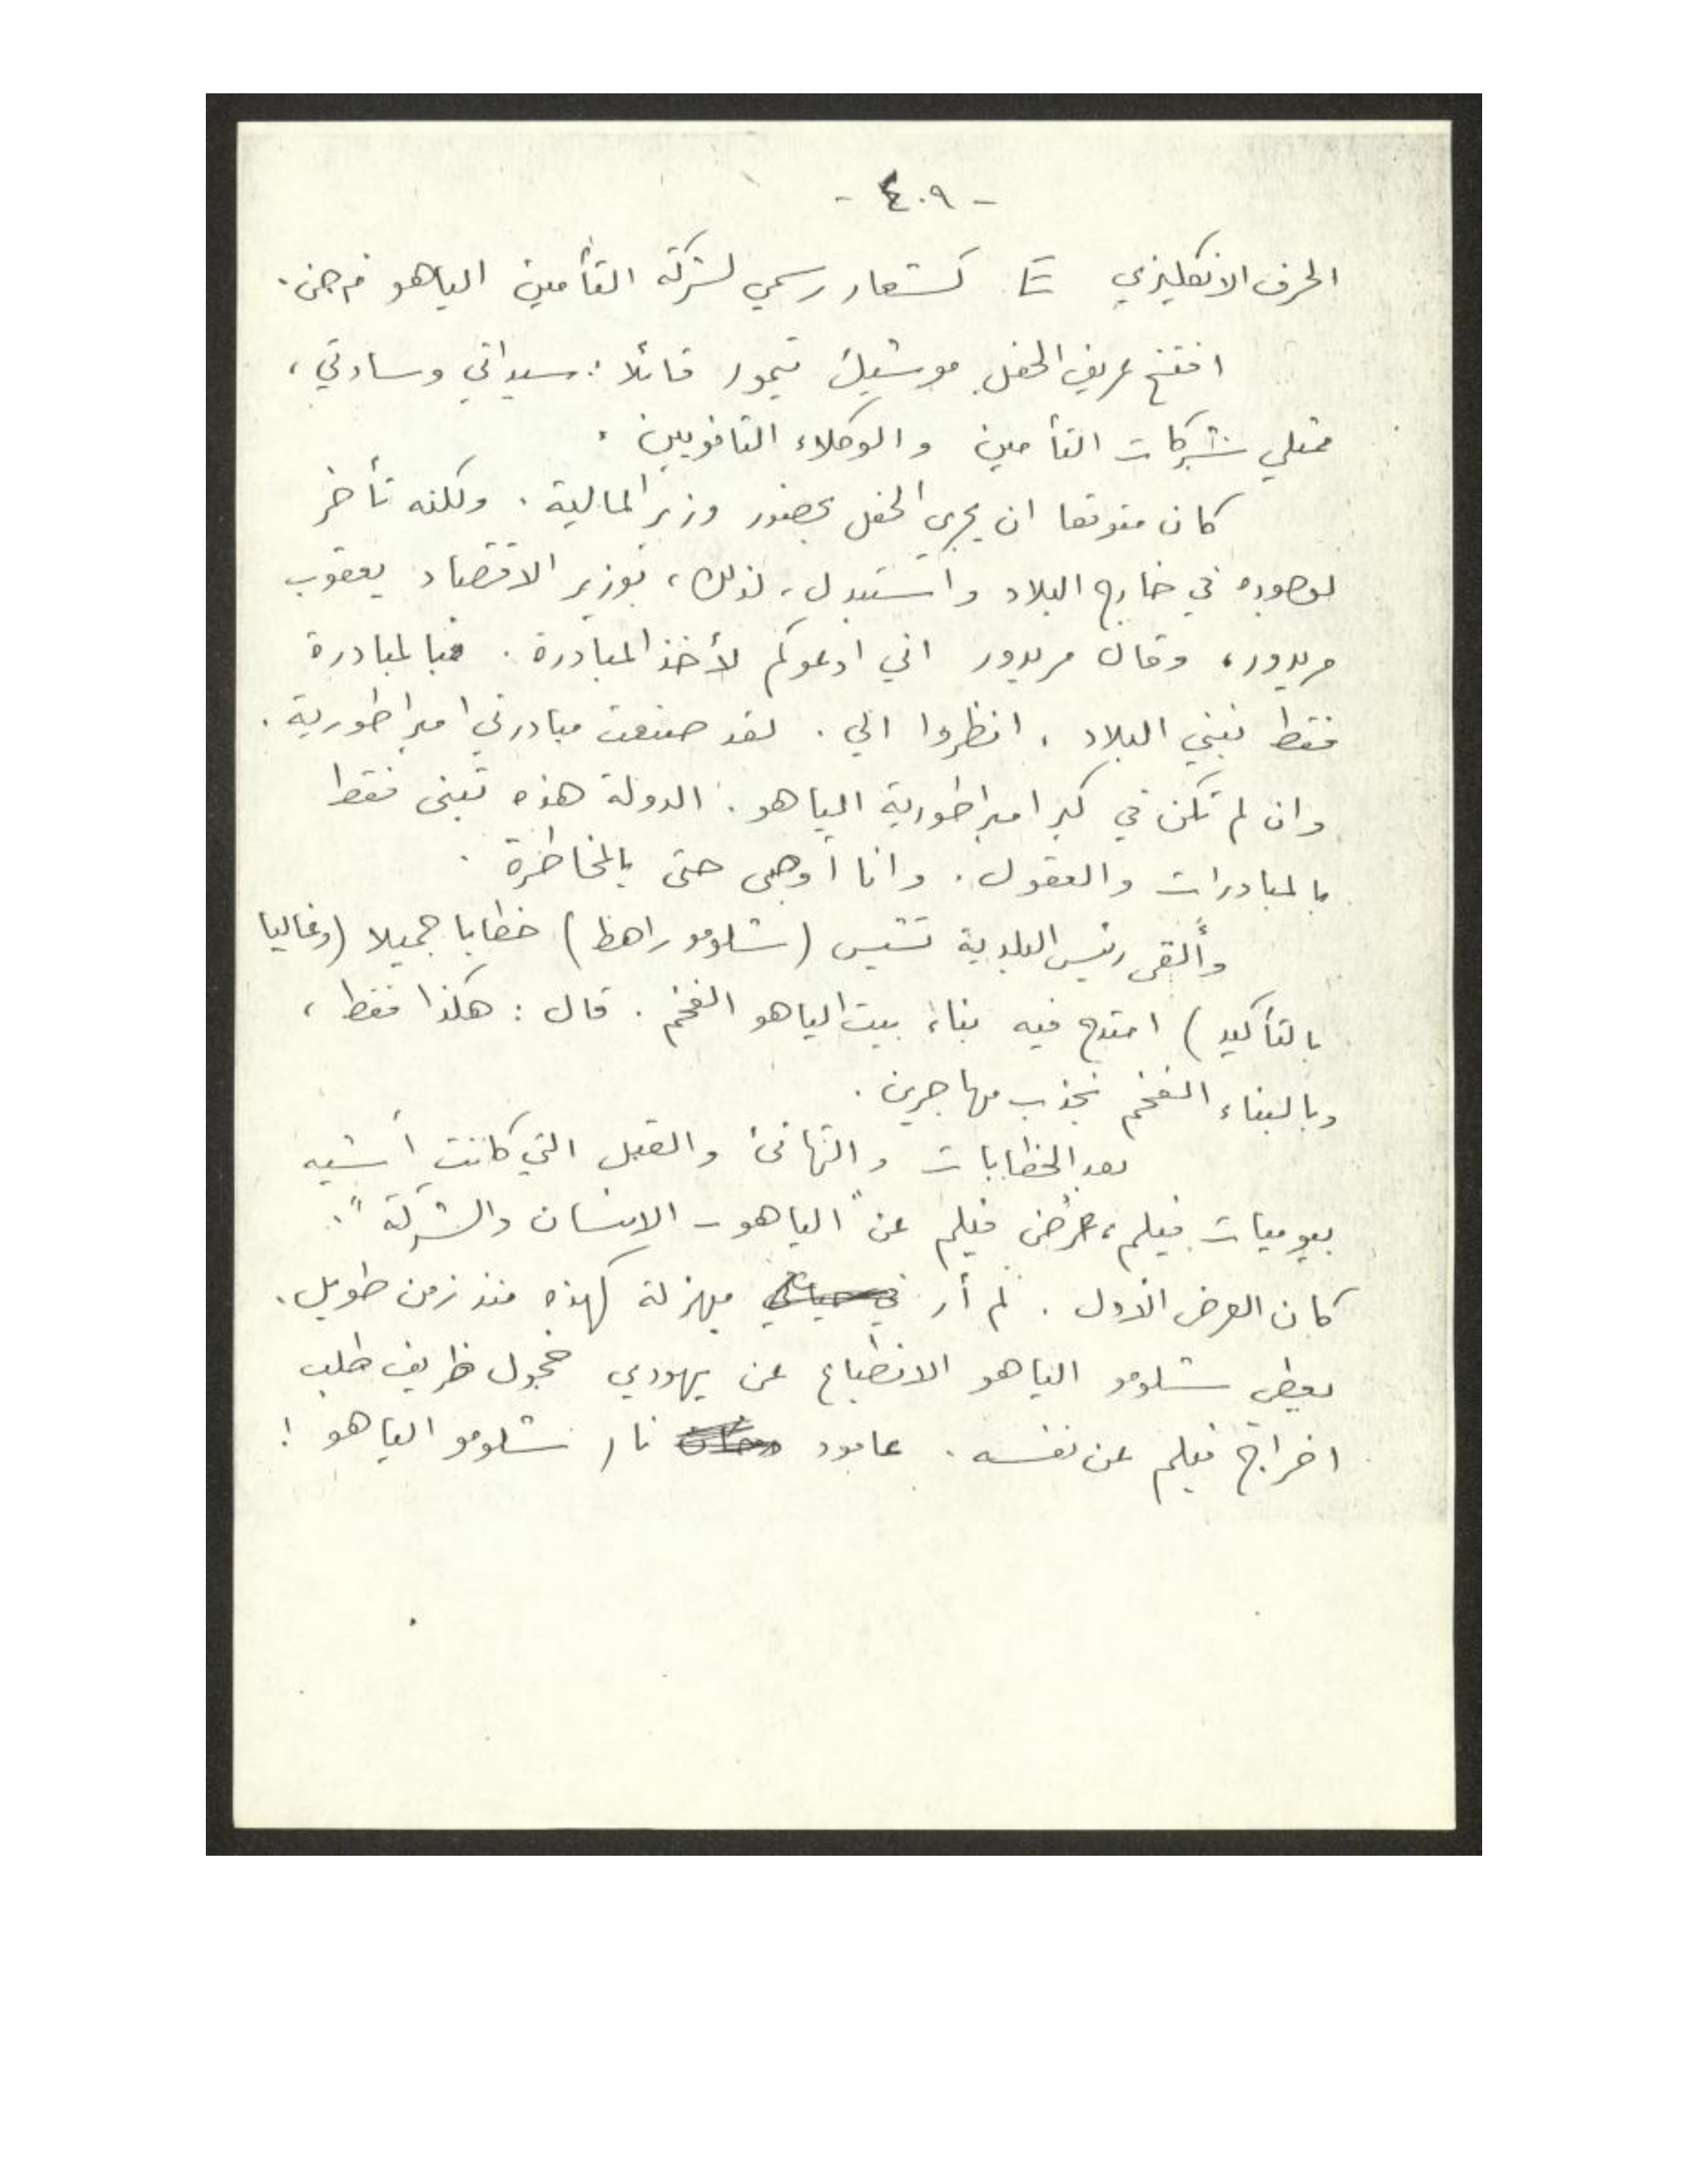 - ٤٠٩ -
الحرف الانكليزي كشعار رسمي لشركة التأمين الياهو
افتتح عريف الحفل موشيك تيمور قائلا : سيداتي وسادتي ،
ممثلي شركات التأمين والوكلاء الثانويين .
كان متوقعا ان يجري الحفل بحضور وزير المالية . ولكنه تأخر
لوجوده في خارج البلاد واستبدل ، لذلك ، بوزير الاقتصاد يعقوب
مريدور ، وقال مريدور اني ادعوكم لأخذ المبادرة . فبالمبادرة
فقط نبني البلاد . انظروا الي . لقد صنعت مبادرتي امبراطورية .
وان لم تكن في كبر امبراطورية الياهو . الدولة هذه تبنى فقط
بالمبادرات والعقول . وانا أوصي حتى بالمخاطرة .
وألقى رئيس البلدية تشيتش (شلومو راهط) خطابا جميلا (وغاليا
بالتأكيد) امتدح فيه بناء بيت الياهو الفخم . قال : هكذا فقط ،
وبالبناء الفخم نجذب مهاجرين .
بعد الخطابات والتهانئ والقبل التي كانت أشبه
بيوميات فيلم ، عُرض فيلم عن "الياهو - الانسان والشركة" .
كان العرض الأول . لم أر مهزلة كهذه منذ زمن طويل .
يعطي شلومو الياهو الانطباع عن يهودي خجول ظريف طلب
اخراج فيلم عن نفسه . عامود نار شلومو الياهو !